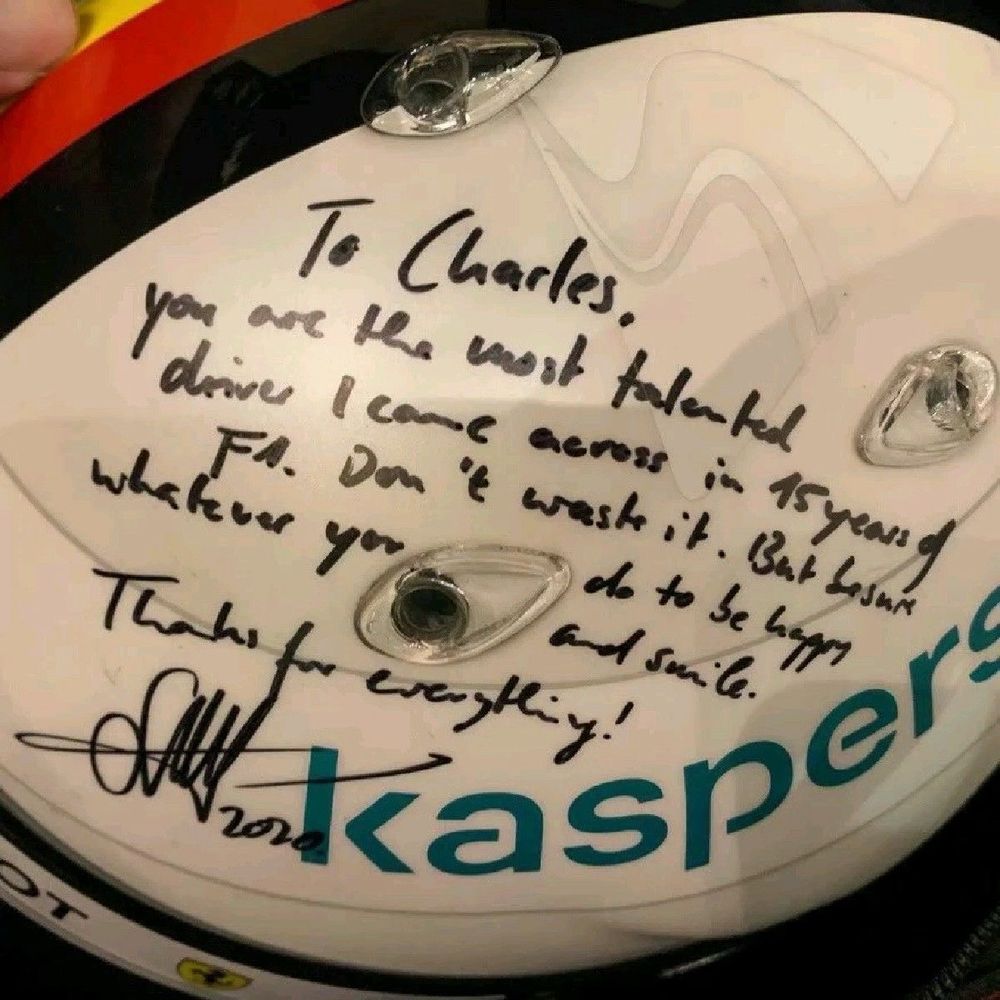 To Charles,
you are the most talented
driver I came across in 15 years of
F1. Don't waste it. But besure
whatever you do to be happy
and smile.
Thanks for everything!
2020
kaspers
OT